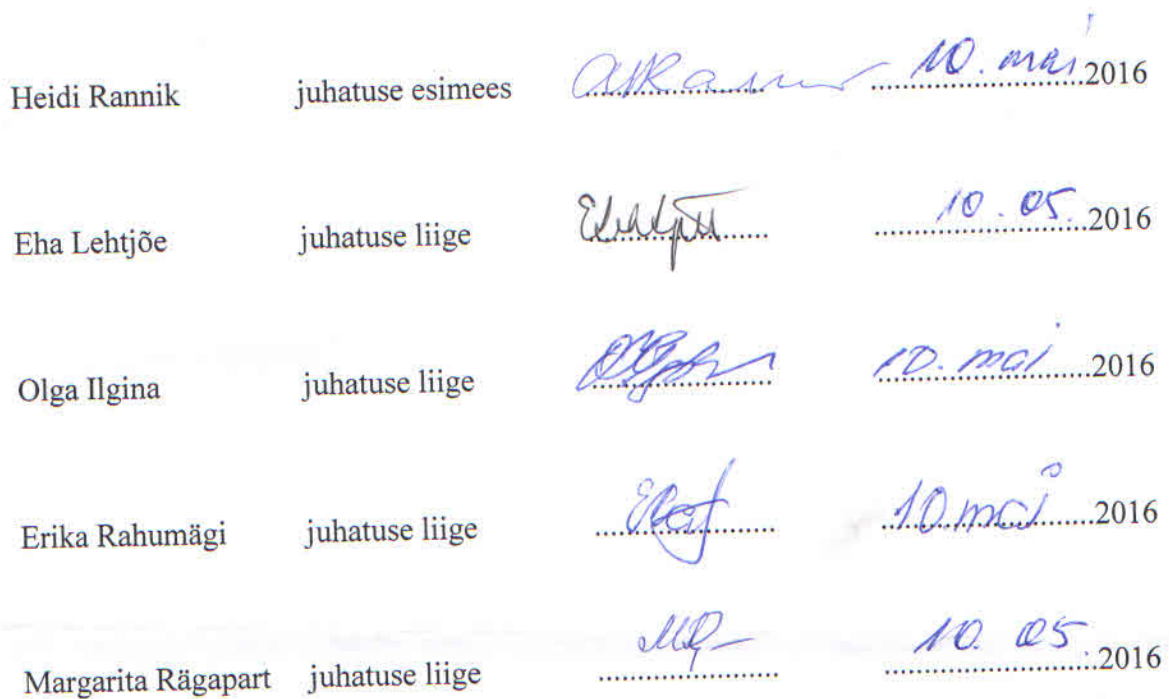 Heidi Rannik juhatuse esimees 10. mai 2016
Eha Lehtjõe juhatuse liige 10.05.2016
Olga Ilgina juhatuse liige 10. mai 2016
Erika Rahumägi juhatuse liige 10 mai 2016
Margarita Rägapart juhatuse liige 10. 05.2016